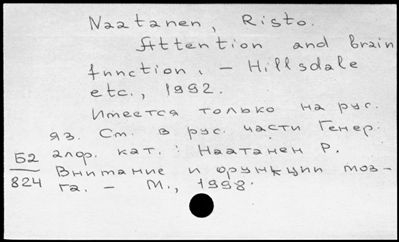 Naatanen, Risto.
Attention and brain
function. – Hillsdale
etc., 1992.
Имеется только на рус.
яз. См. в рус. части Генер.
алф. кат.: Наатанен Р.
Внимание и функции моз-
га. – М., 1998.
Б2
824